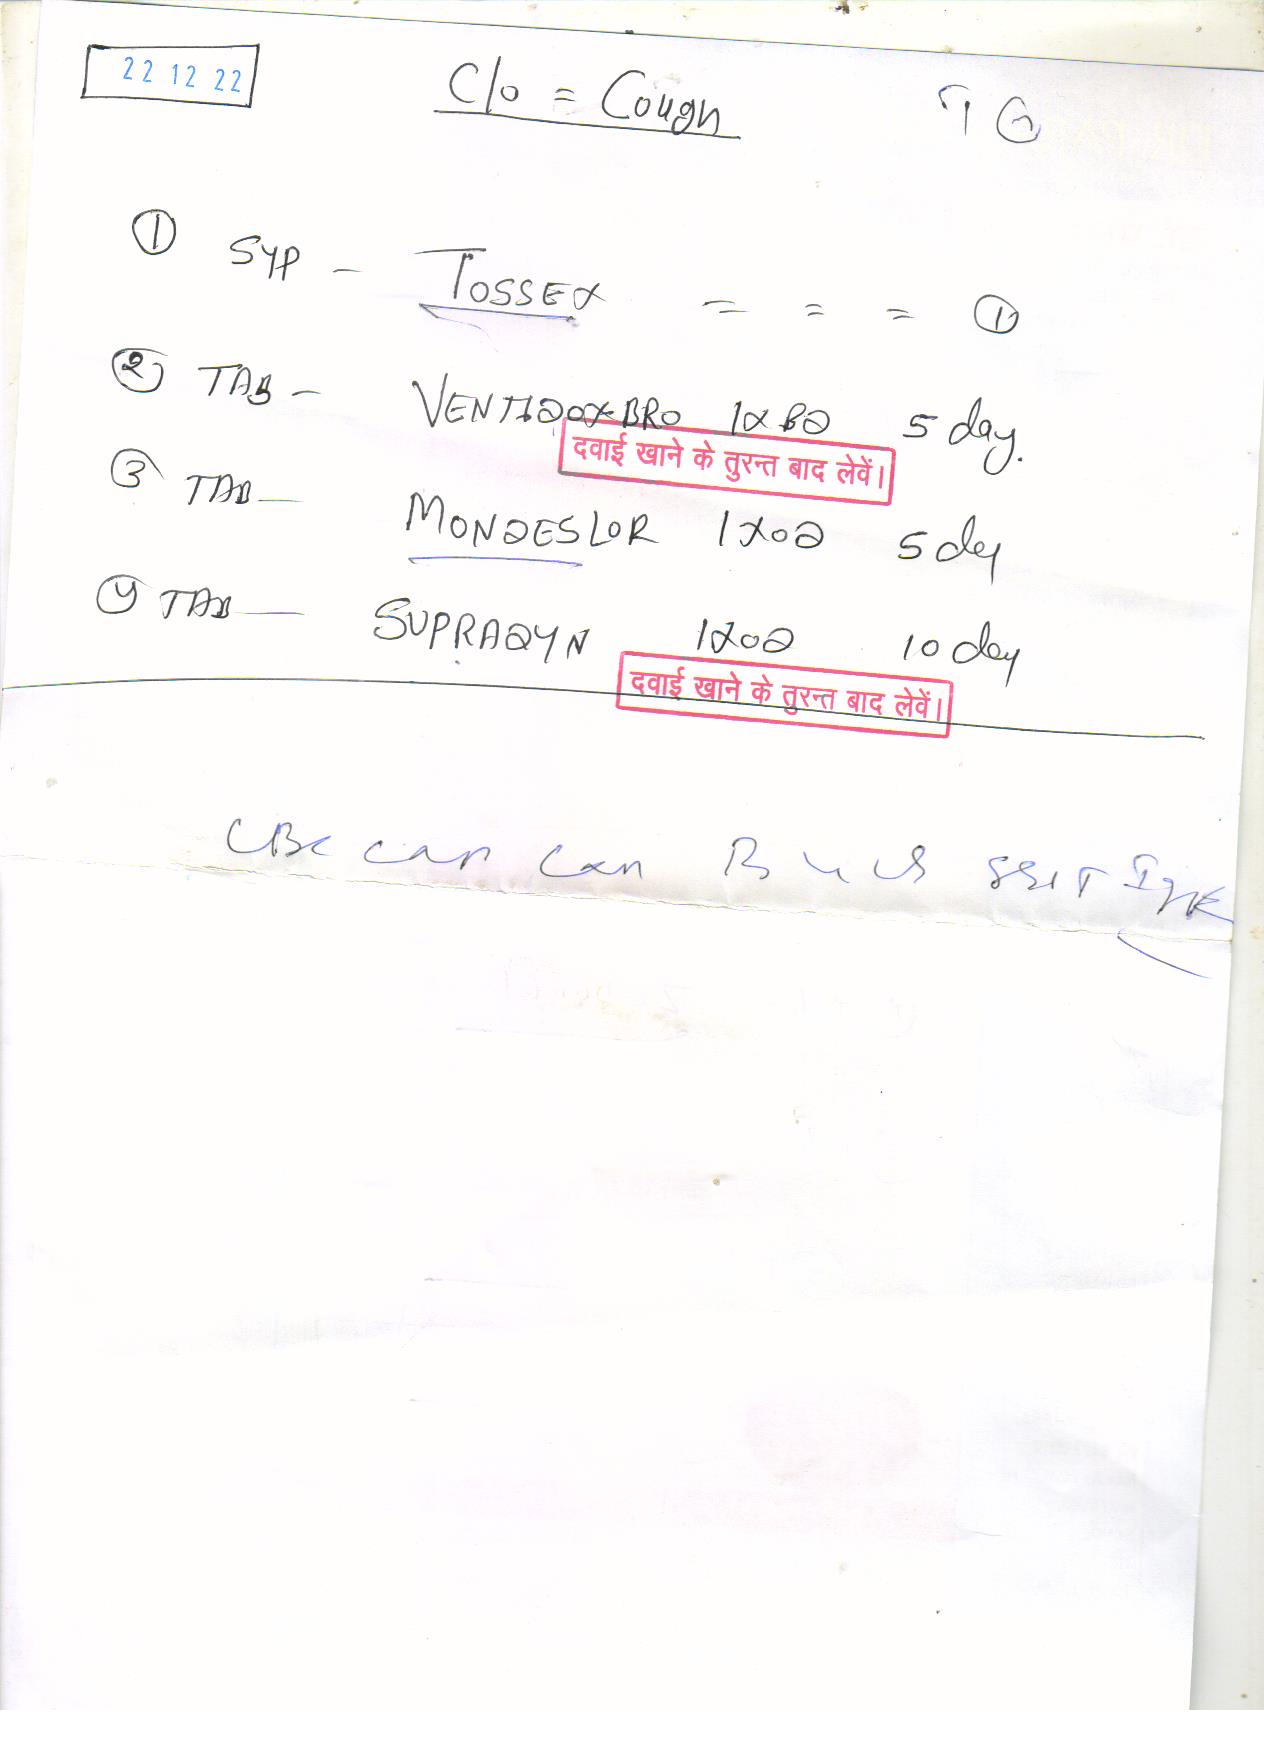 22 12 22
C/o = Cough
① SYP - TOSSEX = = = ①
② TAB - VENTIDOXBRO 1XBD 5 day.
दवाई खाने के तुरन्त बाद लेवें।
③ TAB - MONDESLOR 1XOD 5 day
④ TAB - SUPRADYN 1XOD 10 day
दवाई खाने के तुरन्त बाद लेवें।
CBC